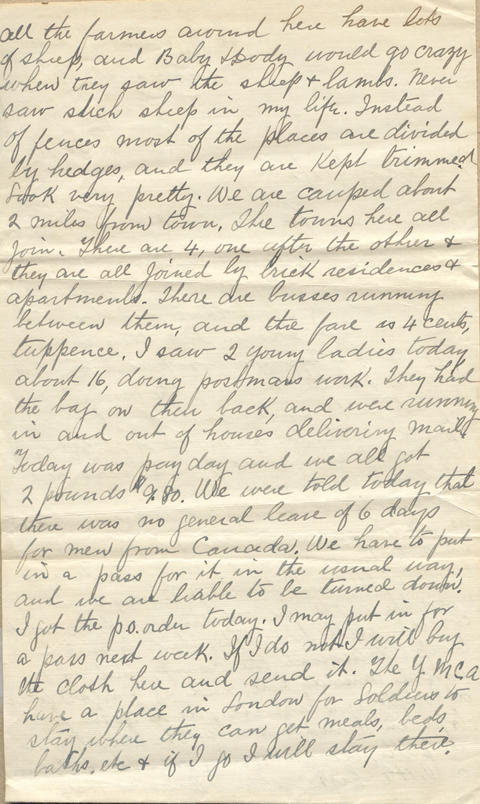 all the farmers around here have lots
of sheep, and Baby & Dody would go crazy
when they saw the sheep & lambs. Never
saw such sheep in my life. Instead
of fences most of the places are divided
by hedges, and they are kept trimmed
look very pretty. We are camped about
2 miles from town. The towns here all
join. There are 4, one after the other &
they are all joined by brick residences &
apartments. There are busses running
between them, and the fare is 4 cents,
tuppence. I saw 2 young ladies today,
about 16, doing postmans work. They had
the bag on their back, and were running
in and out of houses delivering mail.
Today was pay day and we all got
2 pounds We were told today that
there was no general leave of 6 days
for men from Canada. We have to put
in a pass for it in the usual way,
and we are liable to be turned down.
I got the p.o. order today. I may put in for
a pass next week. If I do not I will buy
the cloth here and send it. The Y M.C.A
have a place in London for Soldiers to
stay where they can get meals, beds,
baths, etc & if I go I will stay there.